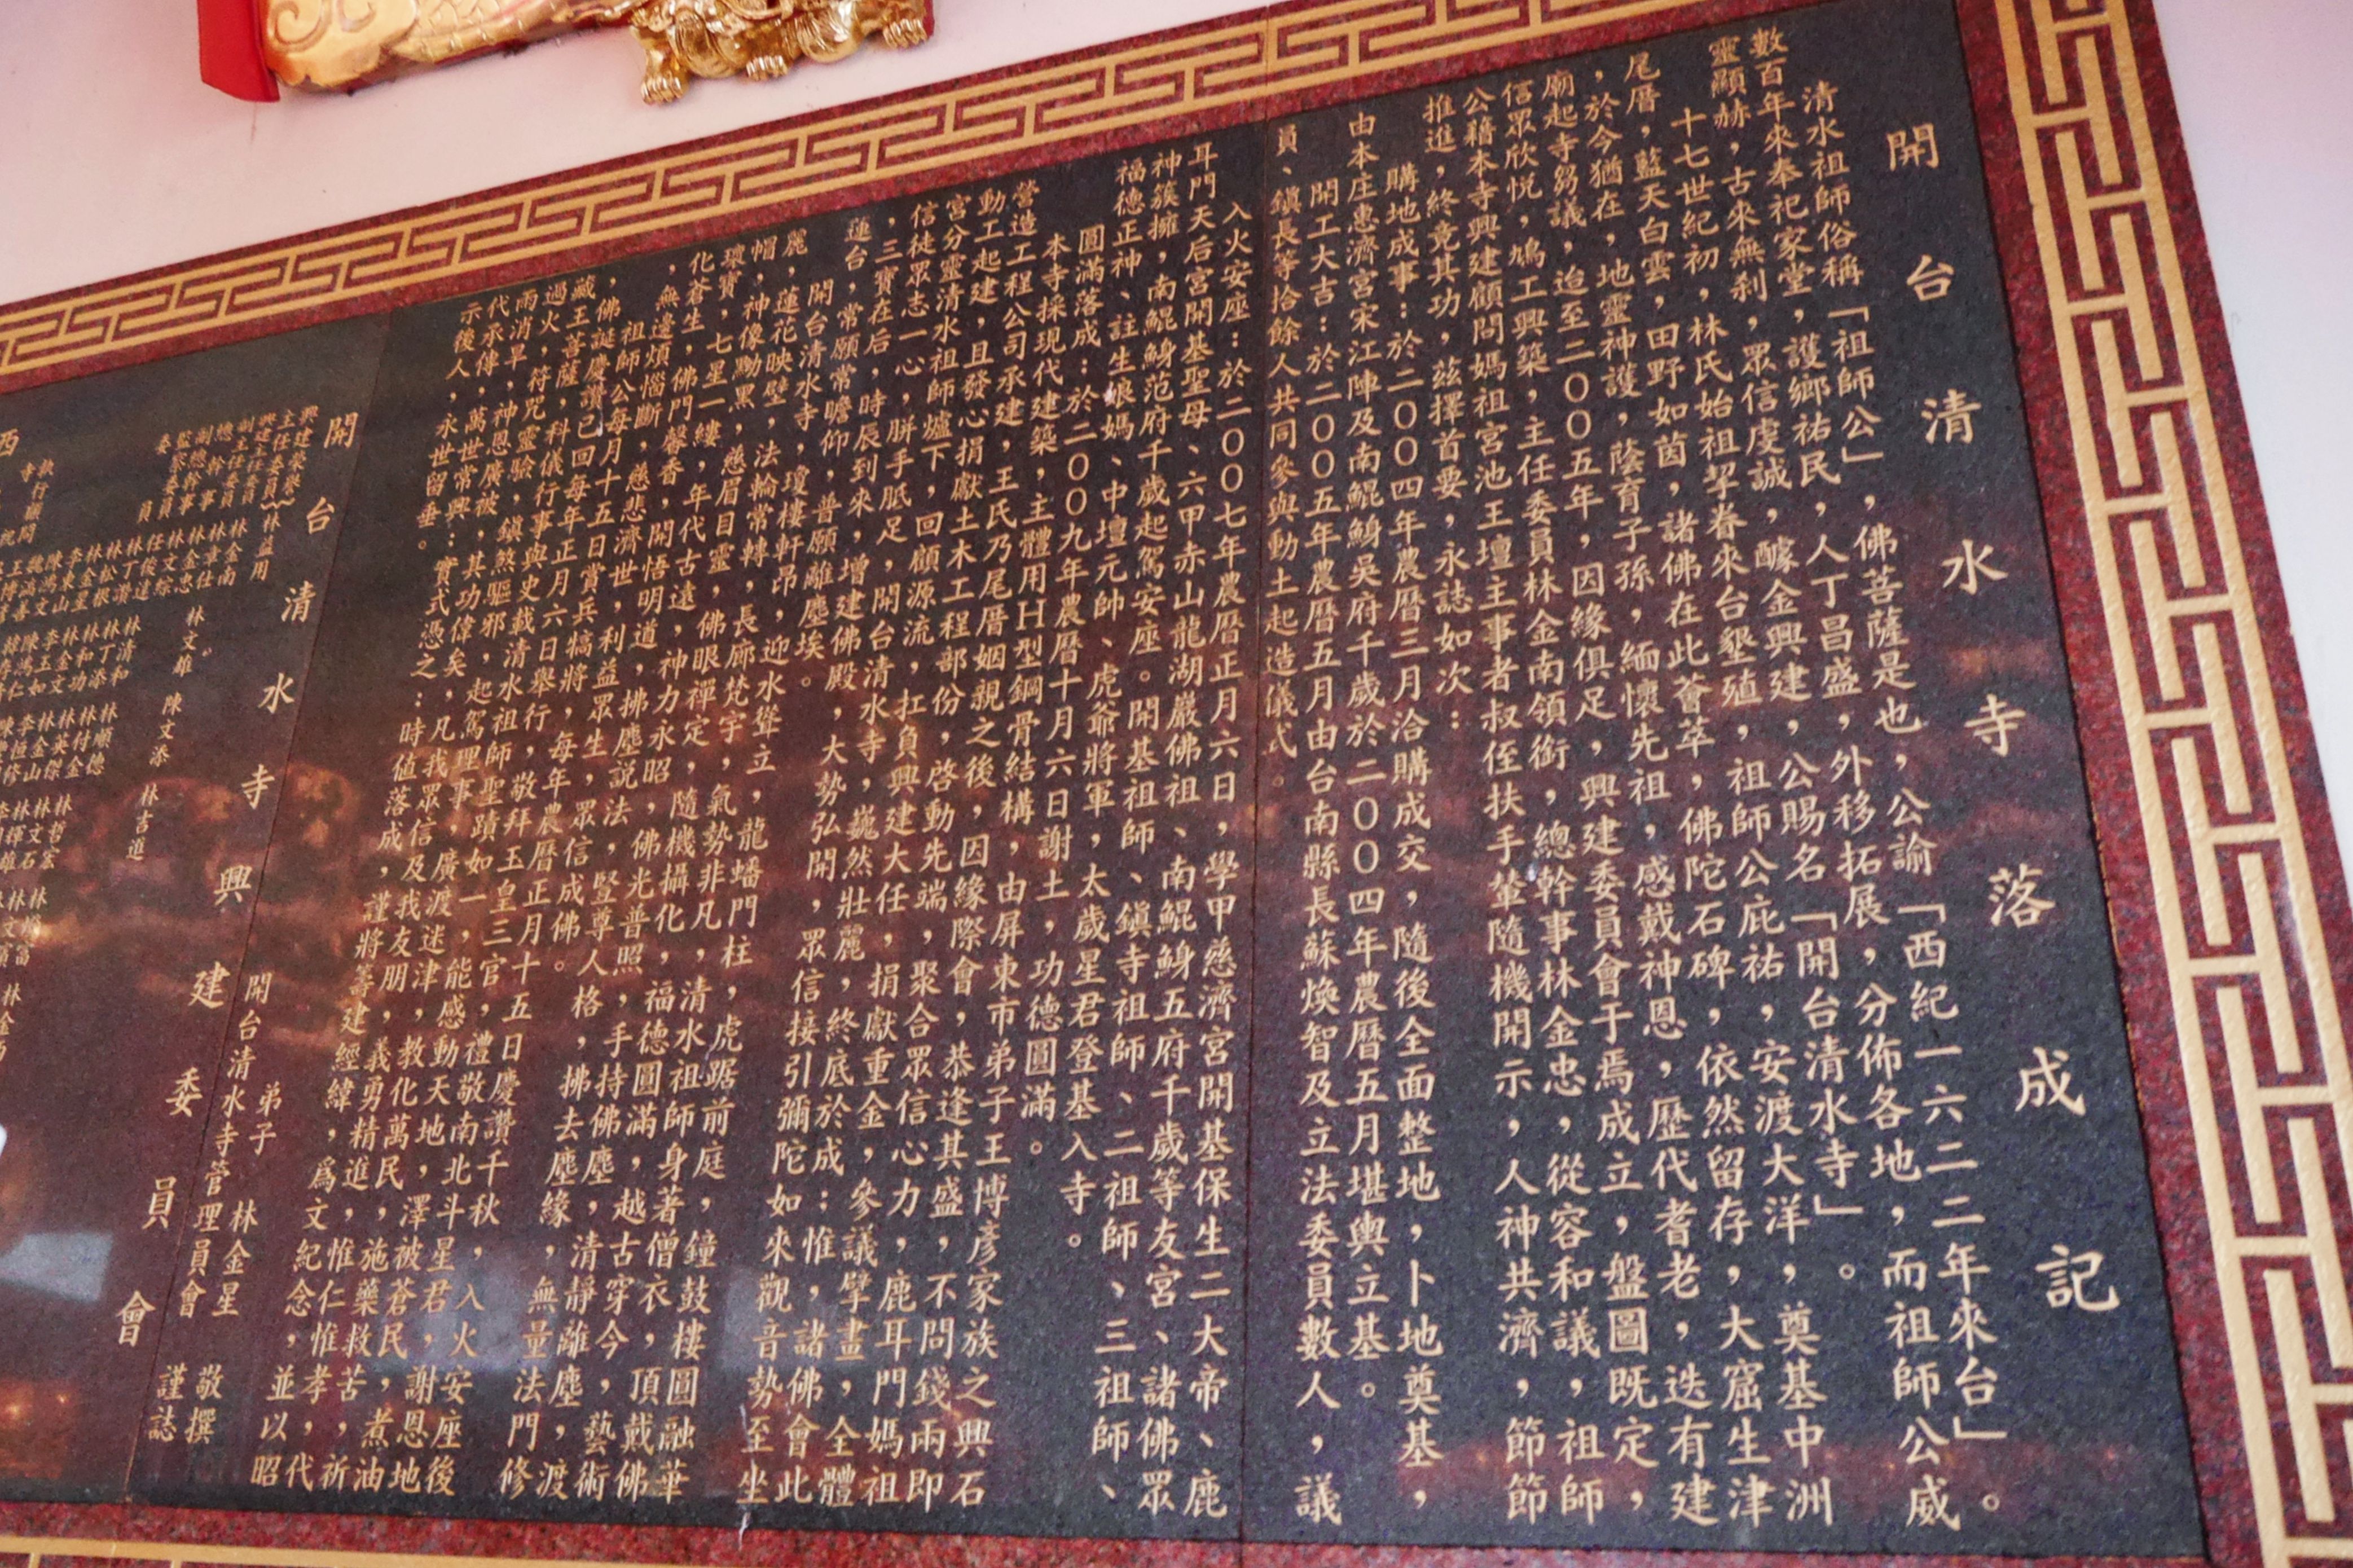 開台清水寺落成記
清水祖師俗稱「祖師公」，佛菩薩是也，公諭「西紀一六二二年來台」。
數百年來奉祀家堂，護鄉祐民，人丁昌盛，外移拓展，分佈各地，而祖師公威
靈顯赫，古來無刹，眾信虔誠，醵金興建，公賜名「開台清水寺」。
十七世紀初，林氏始祖挈眷來台墾殖，祖師公庇祐，安渡大洋，奠基中洲
尾厝，藍天白雲，田野如茵，諸佛在此薈萃，佛陀石碑，依然留存，大窟生津
，於今猶在，地靈神護，蔭育子孫，緬懷先祖，感戴神恩，歷代耆老，迭有建
廟起寺芻議，迨至二００五年，因緣俱足，興建委員會于焉成立，盤圖既定，
信眾欣悦，鳩工興築，主任委員林金南領銜，總幹事林金忠，從容和議，祖師
公藉本寺興建顧問媽祖宮池王壇主事者叔侄扶手輦隨機開示，人神共濟，節節
推進，終竟其功，茲擇首要，永誌如次：
購地成事：於二００四年農曆三月洽購成交，隨後全面整地，卜地奠基，
由本庄惠濟宮宋江陣及南鯤鯓吳府千歲於二００四年農曆五月堪輿立基。
開工大吉：於二００五年農曆五月由台南縣長蘇煥智及立法委員數人，議
員、鎮長等拾餘人共同參與動土起造儀式。
入火安座：於二００七年農曆正月六日，學甲慈濟宮開基保生二大帝、鹿
耳門天后宮開基聖母、六甲赤山龍湖巖佛祖、南鯤鯓五府千歲等友宮、諸佛眾
神簇擁，南鯤鯓范府千歲起駕安座。開基祖師、鎮寺祖師、二祖師、三祖師、
福德正神、註生娘媽、中壇元帥、虎爺將軍，太歲星君登基入寺。
圓滿落成：於二００九年農曆十月六日謝土，功德圓滿。
本寺採現代建築，主體用H型鋼骨結構，由屏東市弟子王博彥家族之興石
營造工程公司承建，王氏乃尾厝姻親之後，因緣際會，恭逢其盛，不問錢兩即
動工起建，且發心捐獻土木工程部份，啓動先端，聚合眾信心力，鹿耳門媽祖
宮分靈清水祖師爐下，回顧源流，扛負興建大任，捐獻重金，參議擘畫，全體
信徒眾志一心，胼手胝足，開台清水寺，巍然壯麗，終底於成：惟，諸佛會此
，三寶在后，時辰到來，增建佛殿，大勢弘開，眾信接引彌陀如來觀音勢至坐
蓮台，常願常瞻仰，普願離塵埃。
開台清水寺，瓊樓軒昂，迎水聳立，龍蟠門柱，虎踞前庭，鐘鼓樓圓融華
麗，蓮花映壁，法輪常轉，長廊梵宇，氣勢非凡，清水祖師身著僧衣，頂戴佛
帽，神像黝黑，慈眉目靈，佛眼禪定，隨機攝化，福德圓滿，越古穿今，藝術
瓌寶，七星一縷，年代古遠，神力永昭，佛光普照，手持佛塵，清靜離塵，渡
化蒼生，佛門馨香，開悟明道，拂塵説法，豎尊人格，拂去塵緣，無量法門修
，無邊煩惱斷，慈悲濟世，利益眾生，眾信成佛。
祖師公每月十五日賞兵犒將，每年農曆正月十五日慶讚千秋，入火安座後
，佛誕慶讚已回每年正月六日舉行，敬拜玉皇三官，禮敬南北斗星君，謝恩地
藏王菩薩，科儀行事與史載清水祖師聖蹟如一，能感動天地，澤被蒼民，煮油
過火，符咒靈驗，鎮煞驅邪，起駕理事，廣渡迷津，教化萬民，施藥救苦，祈
雨消旱，神恩廣被，其功偉矣，凡我眾信及我友朋，義勇精進，惟仁惟孝，代
代承傳，萬世常興：實式憑之：時値落成，謹將籌建經緯，爲文紀念，並以昭
示後人，永世留垂。
弟子 林金星 敬撰
開台清水寺管理員會 謹誌
開台清水寺興建委員會
林益用
林金南
林金忠
林文雄 陳文添 林吉進